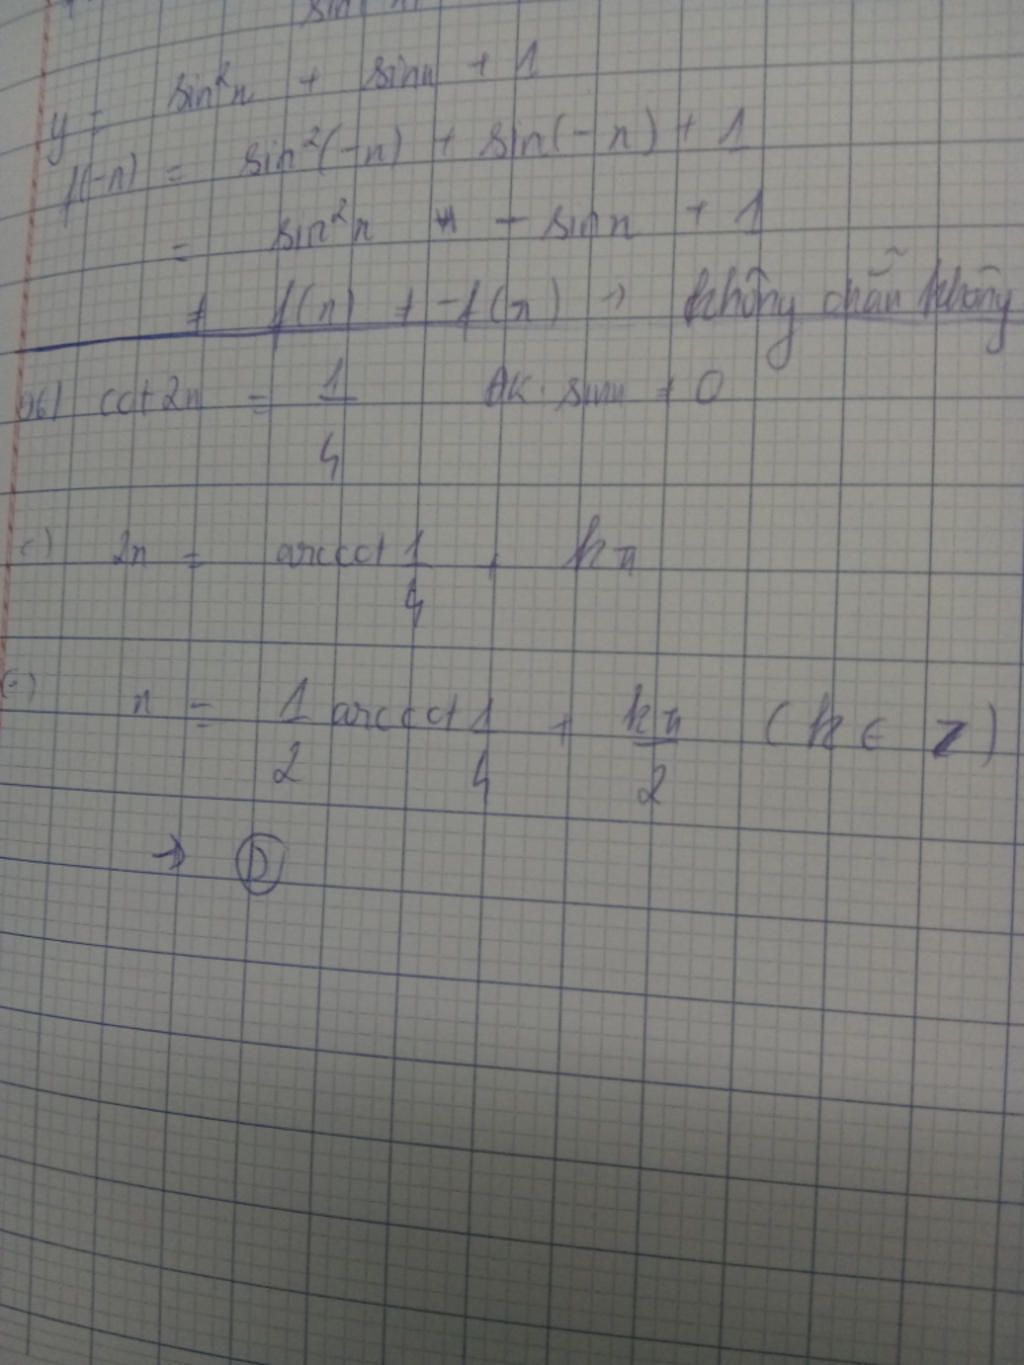 y = sin²x + sinx + 1
f(-x) = sin²(-x) + sin(-x) + 1
= sin²x - sinx + 1
≠ f(x) ≠ -f(x) → không chẵn không
cot 2x = 1/4 ĐK: sinx ≠ 0
(=) 2x = arccot 1/4 + kπ
(=) x = 1/2 arccot 1/4 + kπ/2 (k ∈ Z)
→ D